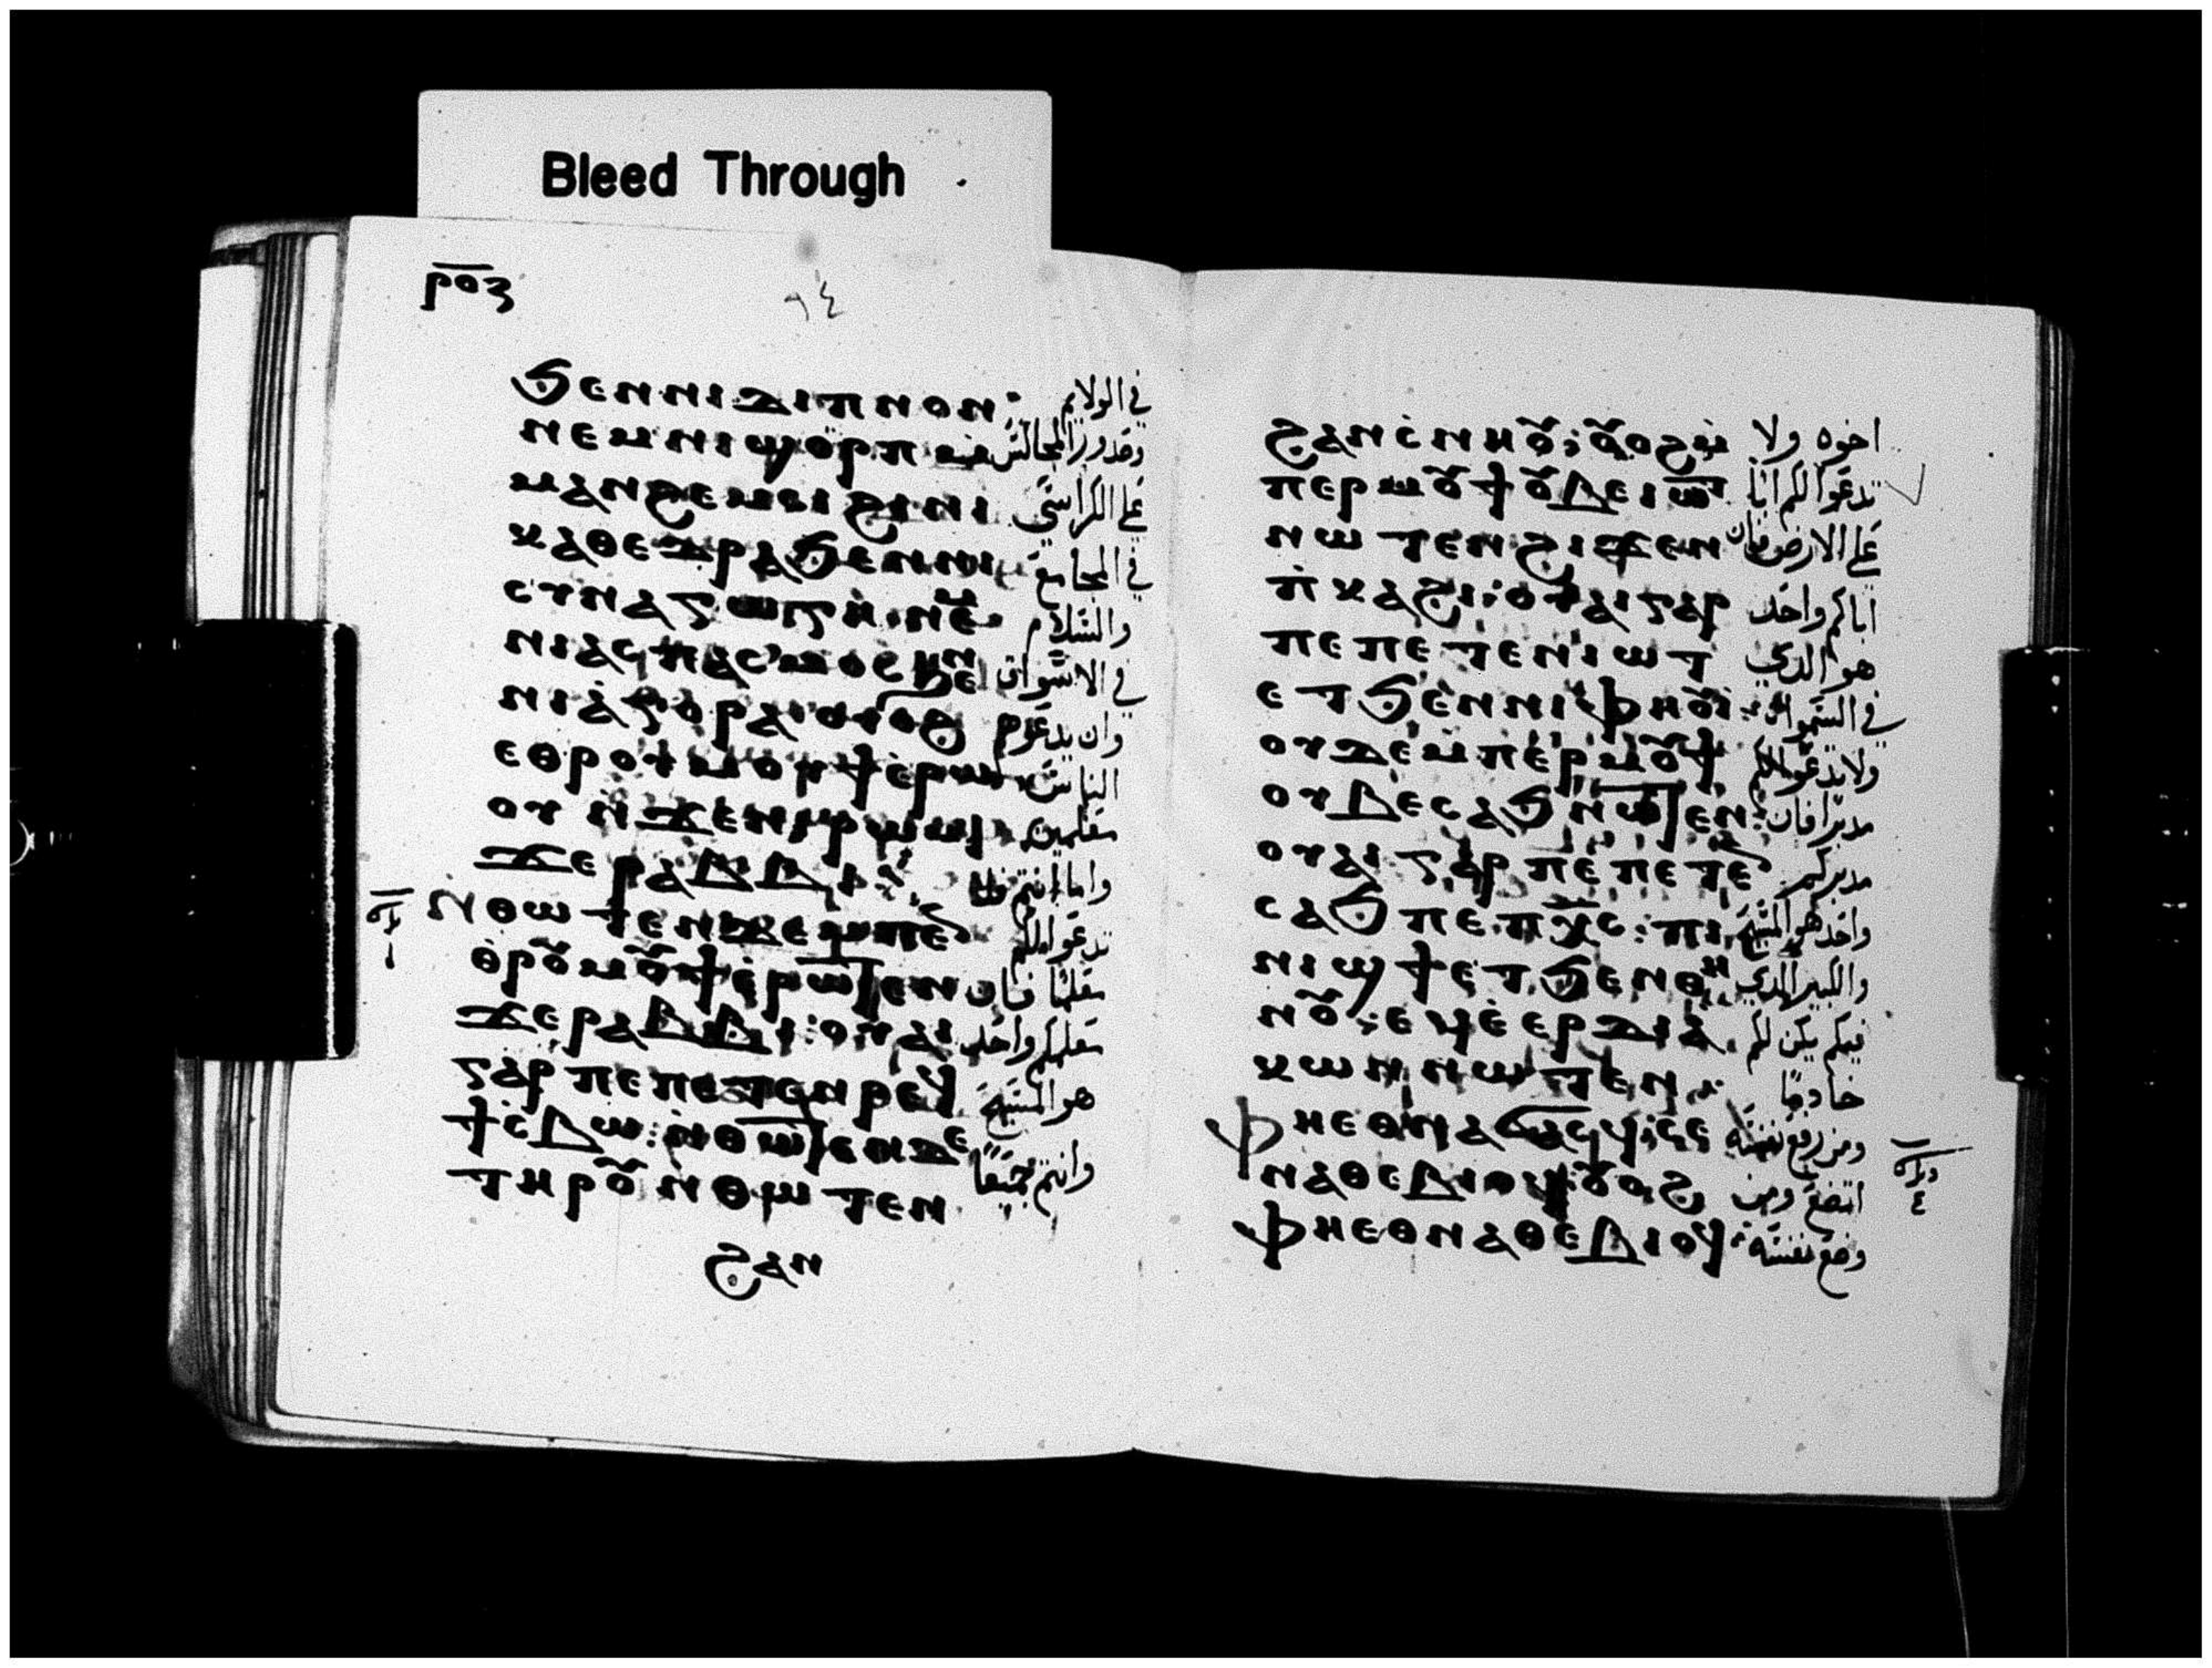 ⲣⲟⲍ
٩٤
ϧⲉⲛⲛⲓⲇⲓⲡⲛⲟⲛ· في الولايم
ⲛⲉⲙⲛⲓϣⲟⲣⲡ ⲙ̀ وصدور المجالس
ⲙⲁⲛϩⲉⲙⲥⲓ ϩⲓⲛⲓ علي الكراسي
ⲕⲁⲑⲉⲇⲣⲁ ϧⲉⲛⲛⲓ في المجامع
ⲥⲩⲛⲁⲅⲱⲅⲏ ⲛⲉⲙ والسلام
ⲛⲓⲁⲥⲡⲁⲥⲙⲟⲥ ϧⲉⲛ في الاسواق
ⲛⲓⲁ̀ⲅⲟⲣⲁ ⲟⲩⲟϩ وان يدعوهم
ⲉⲑⲣⲟⲩⲙⲟⲩϯ ⲉ̀ⲣⲱ الناس
ⲟⲩ ⲛ̀ϫⲉⲛⲓⲣⲱⲙⲓ معلمين
ϫⲉ ⲣⲁⲃⲃⲓ: واما انتم فلا
ⲛ̀ⲑⲱⲧⲉⲛ ⲇⲉ ⲙⲡⲉ تدعوا لكم
ⲑ̀ⲣⲟⲩⲙⲟⲩϯ ⲉ̀ⲣⲱⲧⲉⲛ معلما فان
ϫⲉⲣⲁⲃⲃⲓ: ⲟⲩⲁⲓ معلمكم واحد
ⲅⲁⲣ ⲡⲉ ⲡⲉⲧⲉⲛⲣⲉϥ هو المسيح
ϯⲥ̀ⲃⲱ: ⲛ̀ⲑⲱⲧⲉⲛ ⲇⲉ وانتم جميعا
ⲧⲏⲣⲟⲩ ⲛ̀ⲑⲱⲧⲉⲛ
ϩⲁⲛ
ϩⲁⲛⲥ̀ⲛⲏⲟⲩ: ⲟⲩⲟϩ ⲙ̀ اخوه ولا
ⲡⲉⲣⲙⲟⲩϯ ⲟⲩⲃⲉⲓⲱⲧ تدعوا لكم ابا
ⲛⲱⲧⲉⲛ ϩⲓϫⲉⲛ علي الارض فان
ⲡ̀ⲕⲁϩⲓ: ⲟⲩⲁⲓ ⲅⲁⲣ اباكم واحد
ⲡⲉ ⲡⲉⲧⲉⲛⲓⲱⲧ هو الذي
ⲉⲧϧⲉⲛⲛⲓⲫⲏⲟⲩⲓ: في السموات
ⲟⲩⲇⲉ ⲙⲡⲉⲣⲙⲟⲩϯ ولا تدعوا لكم
ⲟⲩⲃⲉ ⲥⲁϧ ⲛⲱⲧⲉⲛ: مدبرا فان
ⲟⲩⲁⲓ ⲅⲁⲣ ⲡⲉ ⲡⲉⲧⲉⲛ مدبركم
ⲥⲁϧ ⲡⲉ ⲡⲭⲥ: ⲡⲓ واحد هو المسيح
ⲛⲓϣϯ ⲉⲧϧⲉⲛⲑⲏ والكبير الذي
ⲛⲟⲩ: ⲉϥⲉ̀ⲉⲣⲇⲓⲁ̀ فيكم يكن لكم
ⲕⲱⲛ ⲛⲱⲧⲉⲛ: خادما
ⲫⲏⲉⲑⲛⲁϭⲁⲥϥ: ⲥⲉ ومن رفع نفسه
ⲛⲁⲑⲉⲃⲓⲟϥ: ⲟⲩⲟϩ اتضع ومن
ⲫⲏⲉⲑⲛⲁⲑⲉⲃⲓⲟϥ: وضع نفسه